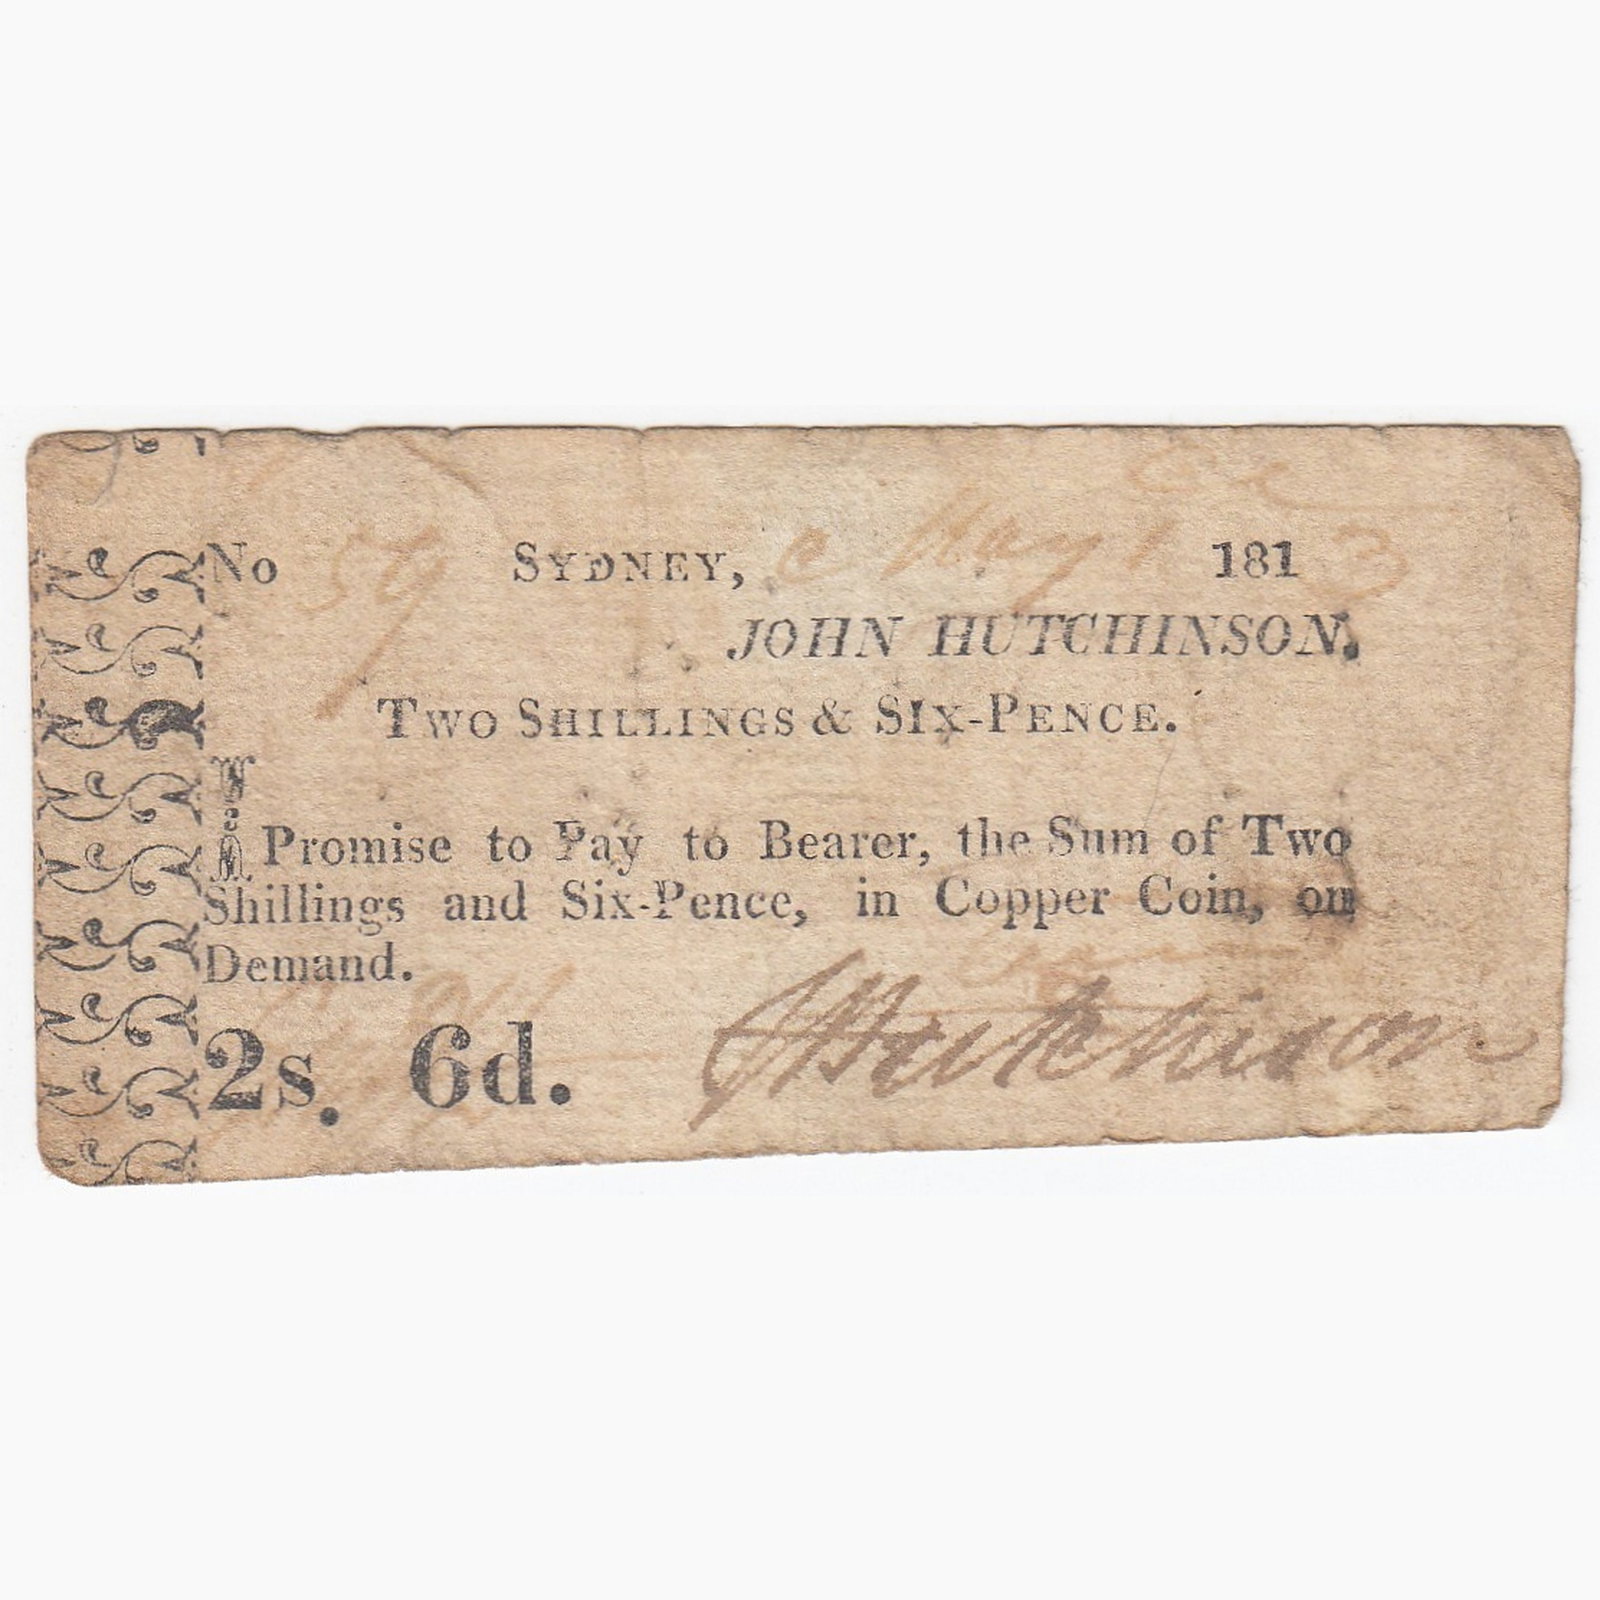 No 59 SYDNEY, May 1 1813
JOHN HUTCHINSON.
TWO SHILLINGS & SIX-PENCE.
I Promise to Pay to Bearer, the Sum of Two
Shillings and Six-Pence, in Copper Coin, on
Demand.
2s. 6d. J Hutchinson